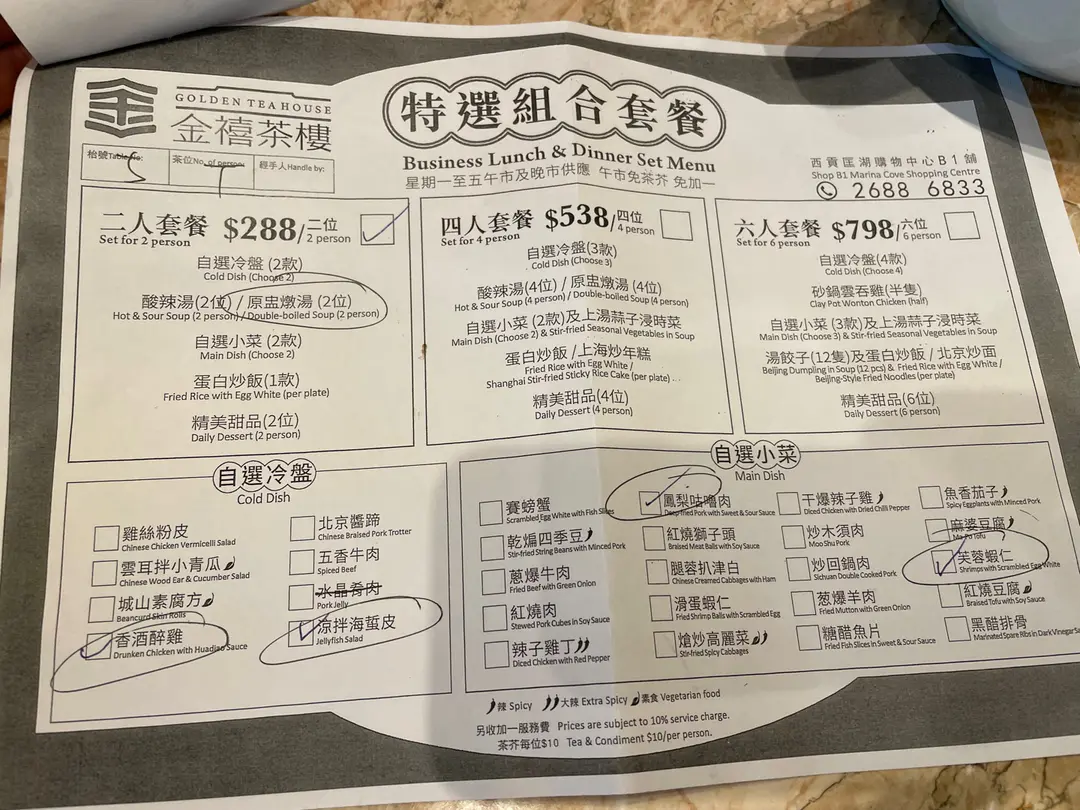 GOLDEN TEA HOUSE
金禧茶樓
枱號Table No:
茶位No. of person:
經手人Handle by:
特選組合套餐
Business Lunch & Dinner Set Menu
星期一至五午市及晚市供應 午市免茶芥 免加一
西貢匡湖購物中心B1舖
Shop B1 Marina Cove Shopping Centre
2688 6833
二人套餐 $288/二位
Set for 2 person 2 person
自選冷盤 (2款)
Cold Dish (Choose 2)
酸辣湯(2位) / 原盅燉湯 (2位)
Hot & Sour Soup (2 person) / Double-boiled Soup (2 person)
自選小菜 (2款)
Main Dish (Choose 2)
蛋白炒飯(1款)
Fried Rice with Egg White (per plate)
精美甜品(2位)
Daily Dessert (2 person)
四人套餐 $538/四位
Set for 4 person 4 person
自選冷盤(3款)
Cold Dish (Choose 3)
酸辣湯(4位) / 原盅燉湯 (4位)
Hot & Sour Soup (4 person) / Double-boiled Soup (4 person)
自選小菜 (2款)及上湯蒜子浸時菜
Main Dish (Choose 2) & Stir-fried Seasonal Vegetables in Soup
蛋白炒飯 /上海炒年糕
Fried Rice with Egg White /
Shanghai Stir-fried Sticky Rice Cake (per plate)
精美甜品(4位)
Daily Dessert (4 person)
六人套餐 $798/六位
Set for 6 person 6 person
自選冷盤(4款)
Cold Dish (Choose 4)
砂鍋雲吞雞(半隻)
Clay Pot Wonton Chicken (half)
自選小菜 (3款)及上湯蒜子浸時菜
Main Dish (Choose 3) & Stir-fried Seasonal Vegetables in Soup
湯餃子(12隻)及蛋白炒飯 / 北京炒面
Beijing Dumpling in Soup (12 pcs) & Fried Rice with Egg White /
Beijing-Style Fried Noodles (per plate)
精美甜品(6位)
Daily Dessert (6 person)
自選冷盤
Cold Dish
雞絲粉皮
Chinese Chicken Vermicelli Salad
雲耳拌小青瓜
Chinese Wood Ear & Cucumber Salad
城山素腐方
Beancurd Skin Rolls
香酒醉雞
Drunken Chicken with Huadiao Sauce
北京醬蹄
Chinese Braised Pork Trotter
五香牛肉
Spiced Beef
水晶肴肉
Pork Jelly
涼拌海蜇皮
Jellyfish Salad
自選小菜
Main Dish
賽螃蟹
Scrambled Egg White with Fish Slices
乾煸四季豆
Stir-fried String Beans with Minced Pork
蔥爆牛肉
Fried Beef with Green Onion
紅燒肉
Stewed Pork Cubes in Soy Sauce
辣子雞丁
Diced Chicken with Red Pepper
鳳梨咕嚕肉
Deep-fried Pork with Sweet & Sour Sauce
紅燒獅子頭
Braised Meat Balls with Soy Sauce
腿蓉扒津白
Chinese Creamed Cabbages with Ham
滑蛋蝦仁
Fried Shrimp Balls with Scrambled Egg
熗炒高麗菜
Stir-fried Spicy Cabbages
干爆辣子雞
Diced Chicken with Dried Chilli Pepper
炒木須肉
Moo Shu Pork
炒回鍋肉
Sichuan Double Cooked Pork
葱爆羊肉
Fried Mutton with Green Onion
糖醋魚片
Fried Fish Slices in Sweet & Sour Sauce
魚香茄子
Spicy Eggplants with Minced Pork
麻婆豆腐
Ma-Po Tofu
芙蓉蝦仁
Shrimps with Scrambled Egg White
紅燒豆腐
Braised Tofu with Soy Sauce
黑醋排骨
Marinated Spare Ribs in Dark Vinegar
辣 Spicy 大辣 Extra Spicy 素食 Vegetarian food
另收加一服務費 Prices are subject to 10% service charge.
茶芥每位$10 Tea & Condiment $10/per person.